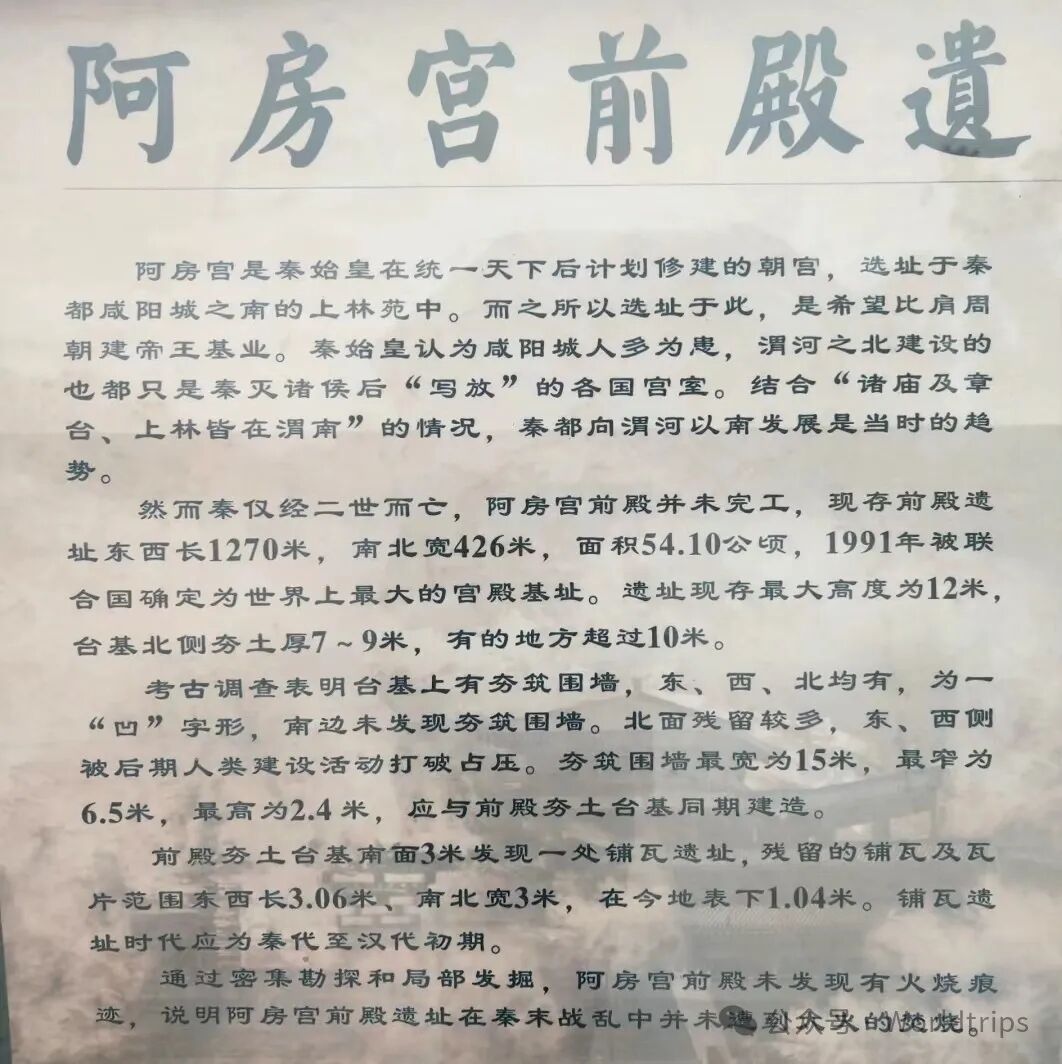 阿房宫前殿遺
阿房宫是秦始皇在统一天下后计划修建的朝宫，选址于秦
都咸阳城之南的上林苑中。而之所以选址于此，是希望比肩周
朝建帝王基业。秦始皇认为咸阳城人多为患，渭河之北建设的
也都只是秦灭诸侯后“写放”的各国宫室。结合“诸庙及章
台、上林皆在渭南”的情况，秦都向渭河以南发展是当时的趋
势。
然而秦仅经二世而亡，阿房宫前殿并未完工，现存前殿遗
址东西长1270米，南北宽426米，面积54.10公顷，1991年被联
合国确定为世界上最大的宫殿基址。遗址现存最大高度为12米，
台基北侧夯土厚7～9米，有的地方超过10米。
考古调查表明台基上有夯筑围墙，东、西、北均有，为一
“凹”字形，南边未发现夯筑围墙。北面残留较多，东、西侧
被后期人类建设活动打破占压。夯筑围墙最宽为15米，最窄为
6.5米，最高为2.4米，应与前殿夯土台基同期建造。
前殿夯土台基南面3米发现一处铺瓦遗址，残留的铺瓦及瓦
片范围东西长3.06米、南北宽3米，在今地表下1.04米。铺瓦遗
址时代应为秦代至汉代初期。
通过密集勘探和局部发掘，阿房宫前殿未发现有火烧痕
迹，说明阿房宫前殿遗址在秦末战乱中并未遭到大火的焚烧。
公众号·Wondtrips